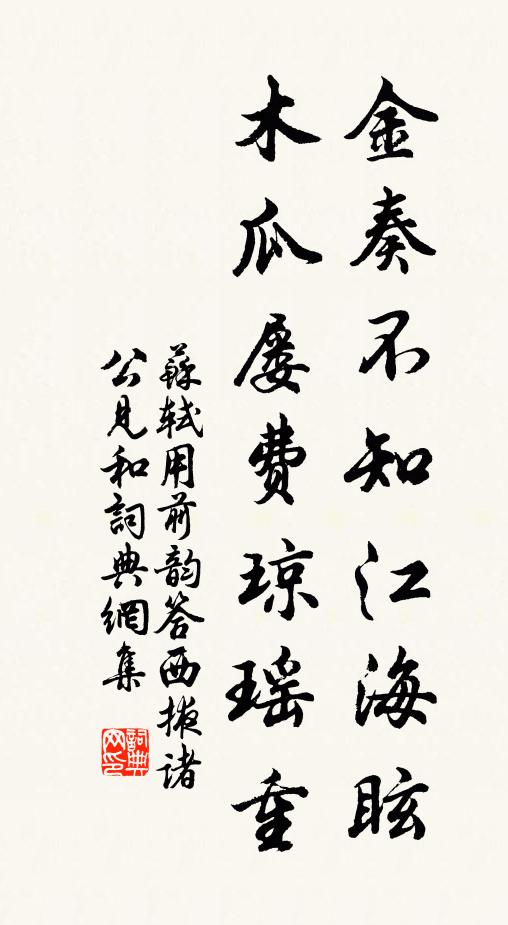 金奏不知江海眩
木瓜屡费琼瑶重
蘇轼用前韵答西掖诸
公見和詞典網集
詞典网印